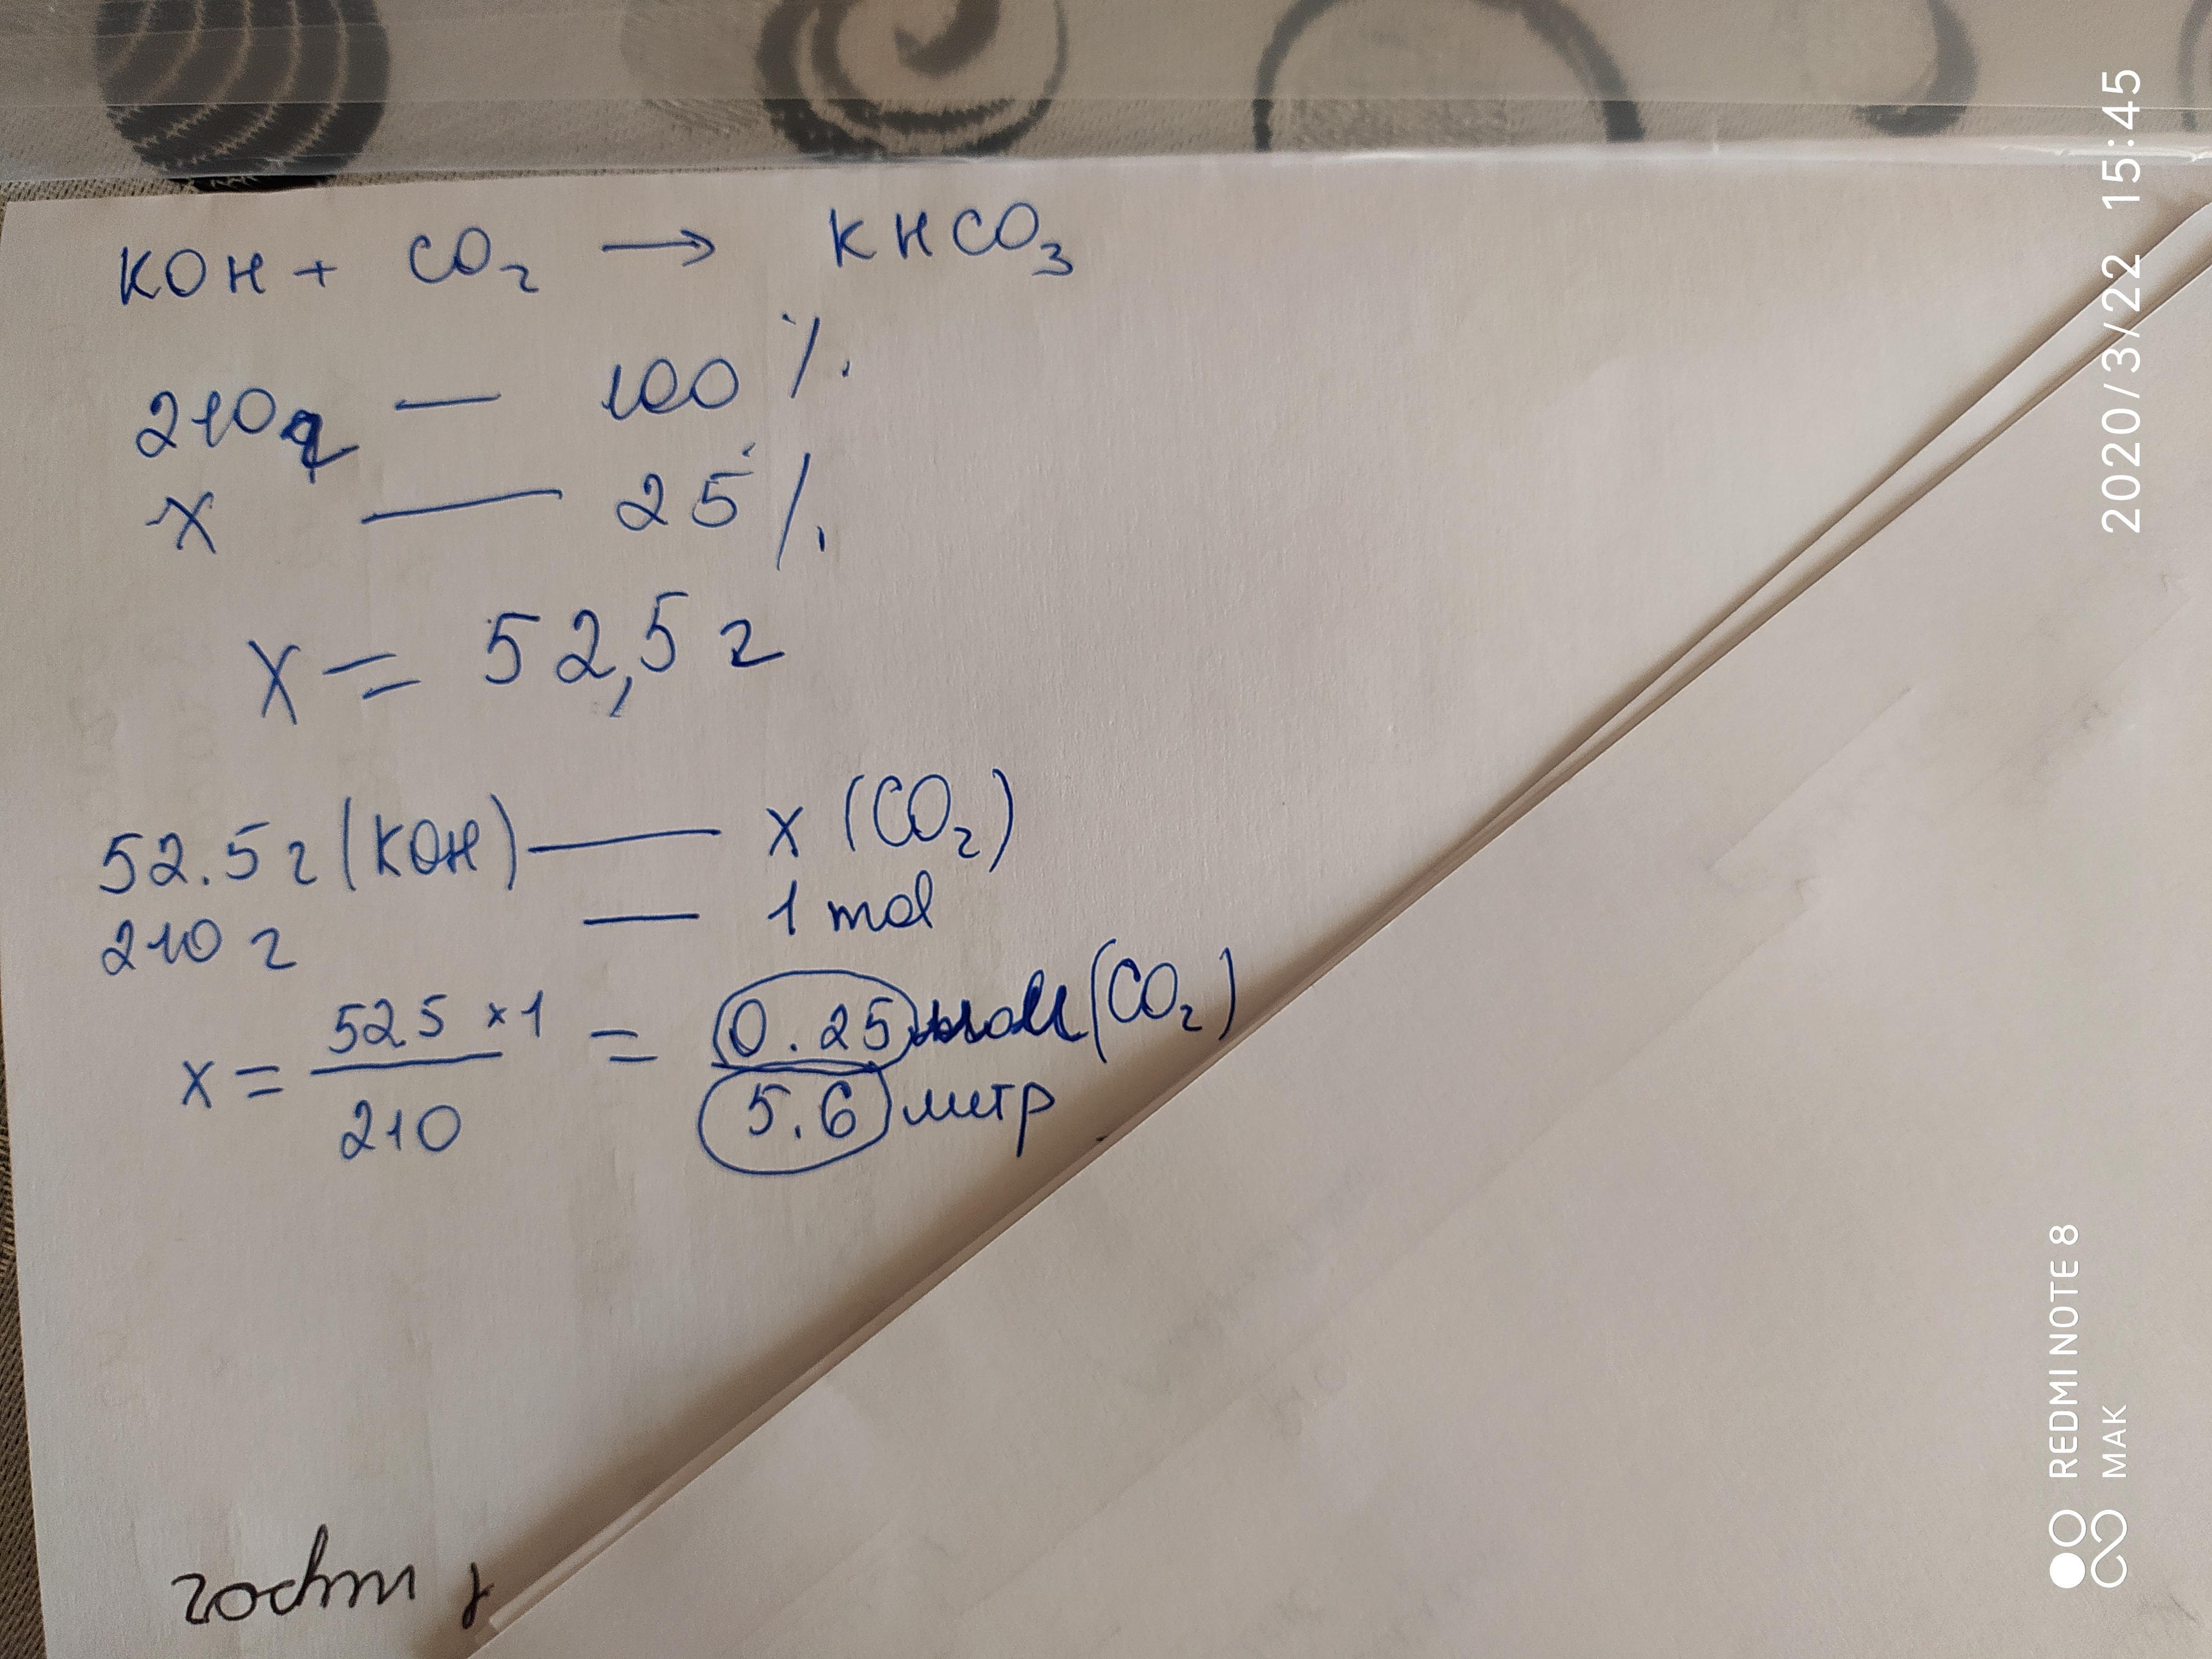 KOH + CO2 → KHCO3
210г — 100 %
x — 25 %
x = 52,5 г
52.5 г (KOH) — x (CO2)
210 г — 1 mol
x = 52.5 × 1 / 210 = 0.25 мол (CO2)
5.6 литр
2020/3/22 15:45
REDMI NOTE 8
MAK